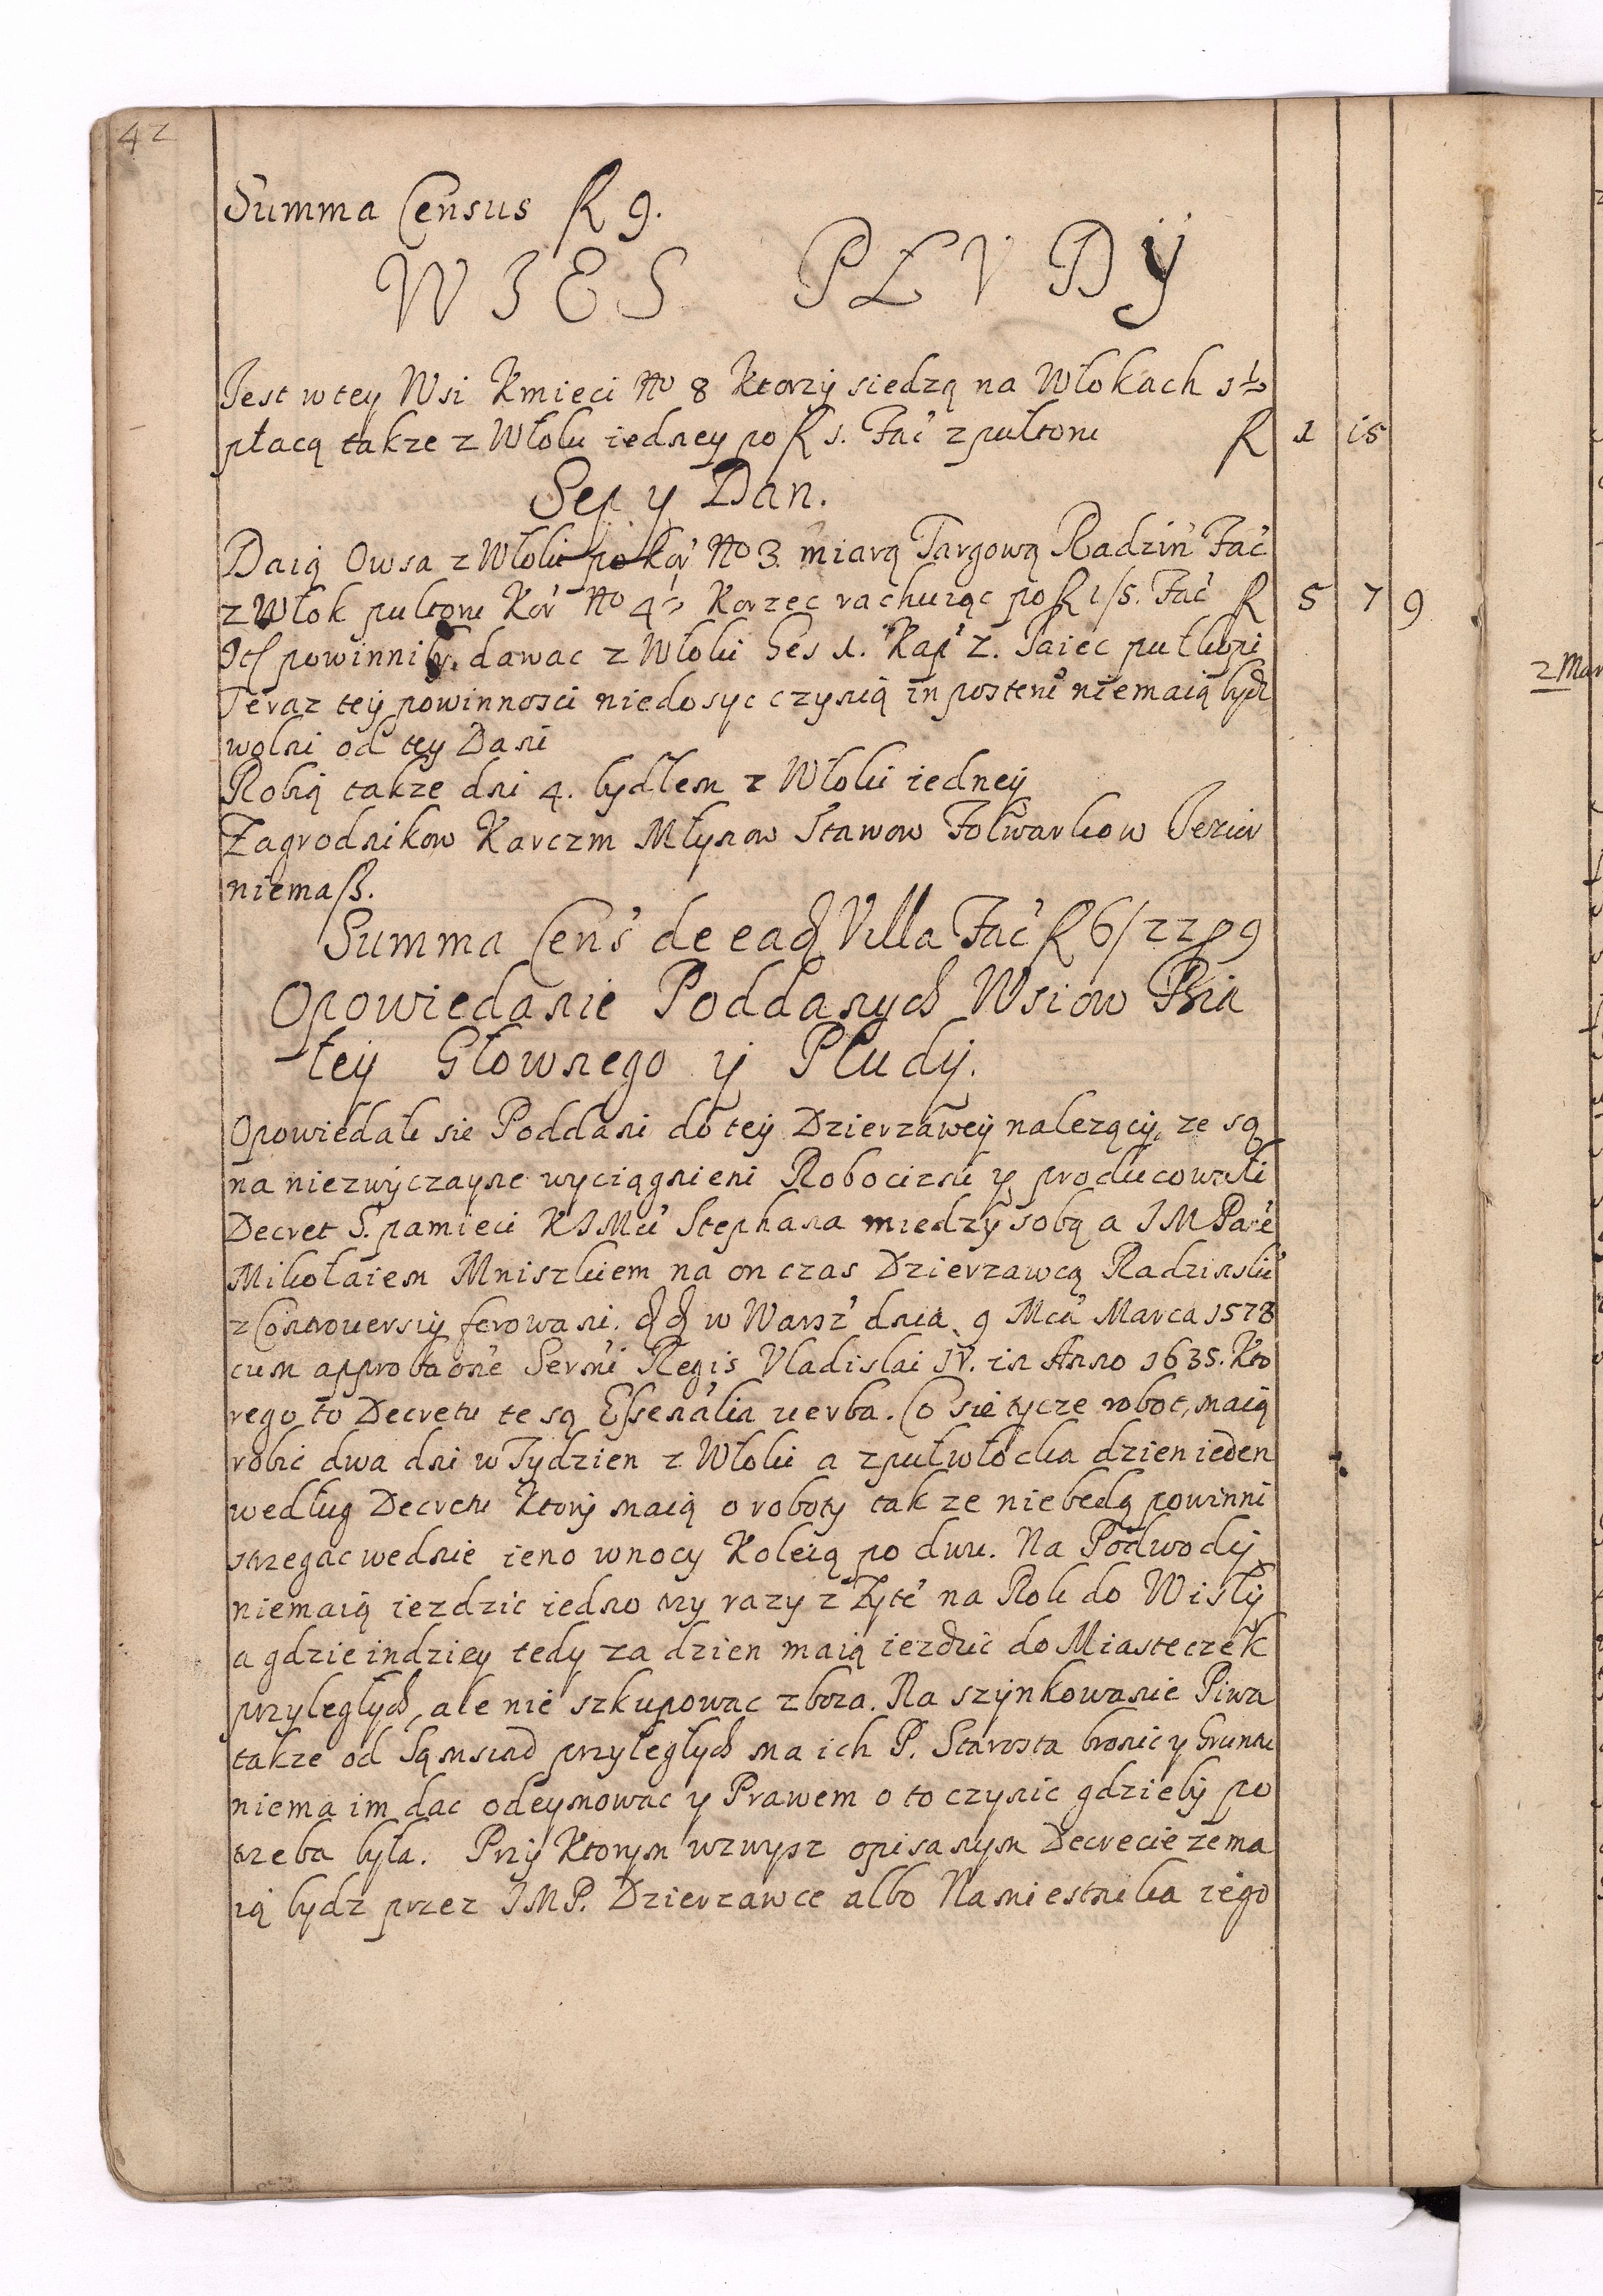 42
Summa Census fl 9.
WIES PŁVDY
Jest w tey Wsi Kmieci No 8 Ktorzy siedzą na Włokach 1½
płacą takze z Włoki iedney po fl 1. Fać z pułtoru fl 1 15
Sep y Dan.
Daią Owsa z Włoki po Kor No 3. miarą Targową Radziń Fać
z Włok pultoru Kor No 4½ Korzec rachuiąc po fl 1/5. Fać fl 5 7 9
Ich powinni dawac z Włoki Ges 1. Kap 2. Jaiec pułkopi
Teraz tey powinnosci niedosyc czynią in posterů niemaią bydz
wolni od tey Dani
Robią takze dni 4. bydłem z Włoki iedney
Zagrodnikow Karczm Młynow Stawow Folwarkow Jezior
niemasz.
Summa Cens de ead Villa Fać fl 6/22 9
Opowiedanie Poddanych Wsiow Bia
łey Głownego y Płudy.
Opowiedali sie Poddani do tey Dzierzawey nalezący, ze są
na niezwyczayne wyciągnieni Robocizni y producowali
Decret S. pamieci KJMći Stephana miedzy sobą a JMPanē
Mikołaiem Mniszkiem na on czas Dzierzawcą Radzińskī
z Controuersiy ferowani. w Warsz dnia 9 Mća Marca 1578
cum approbaōne Sermi Regis Vladislai IV. in Anno 1635. Kto
rego to Decretu te są Essenālia uerba. Co sie tycze robot, maią
robic dwa dni w Tydzien z Włoki a z pułwłocka dzien ieden
według Decretu Ktory maią o roboty takze niebedą powinni
strzegac wednie ieno wnocy Koleią po dwu. Na Podwody
niemaią iezdzic iedno trzy razy z Zytē na Rok do Wisły
a gdzieindziey tedy za dzien maią iezdzic do Miasteczek
przyległych, ale nie szkupowac zboza. Na szynkowanie Piwa
takze od Sąmsiad przyległych ma ich P. Starosta bronic y Gruntu
niema im dac odeymowac y Prawem o to czynic gdzieby po
trzeba była. Przy Ktorym wzwysz opisanym Decrecie ze ma
ią bydz przez JMP. Dzierzawce albo Namiestnika iego
z Mar